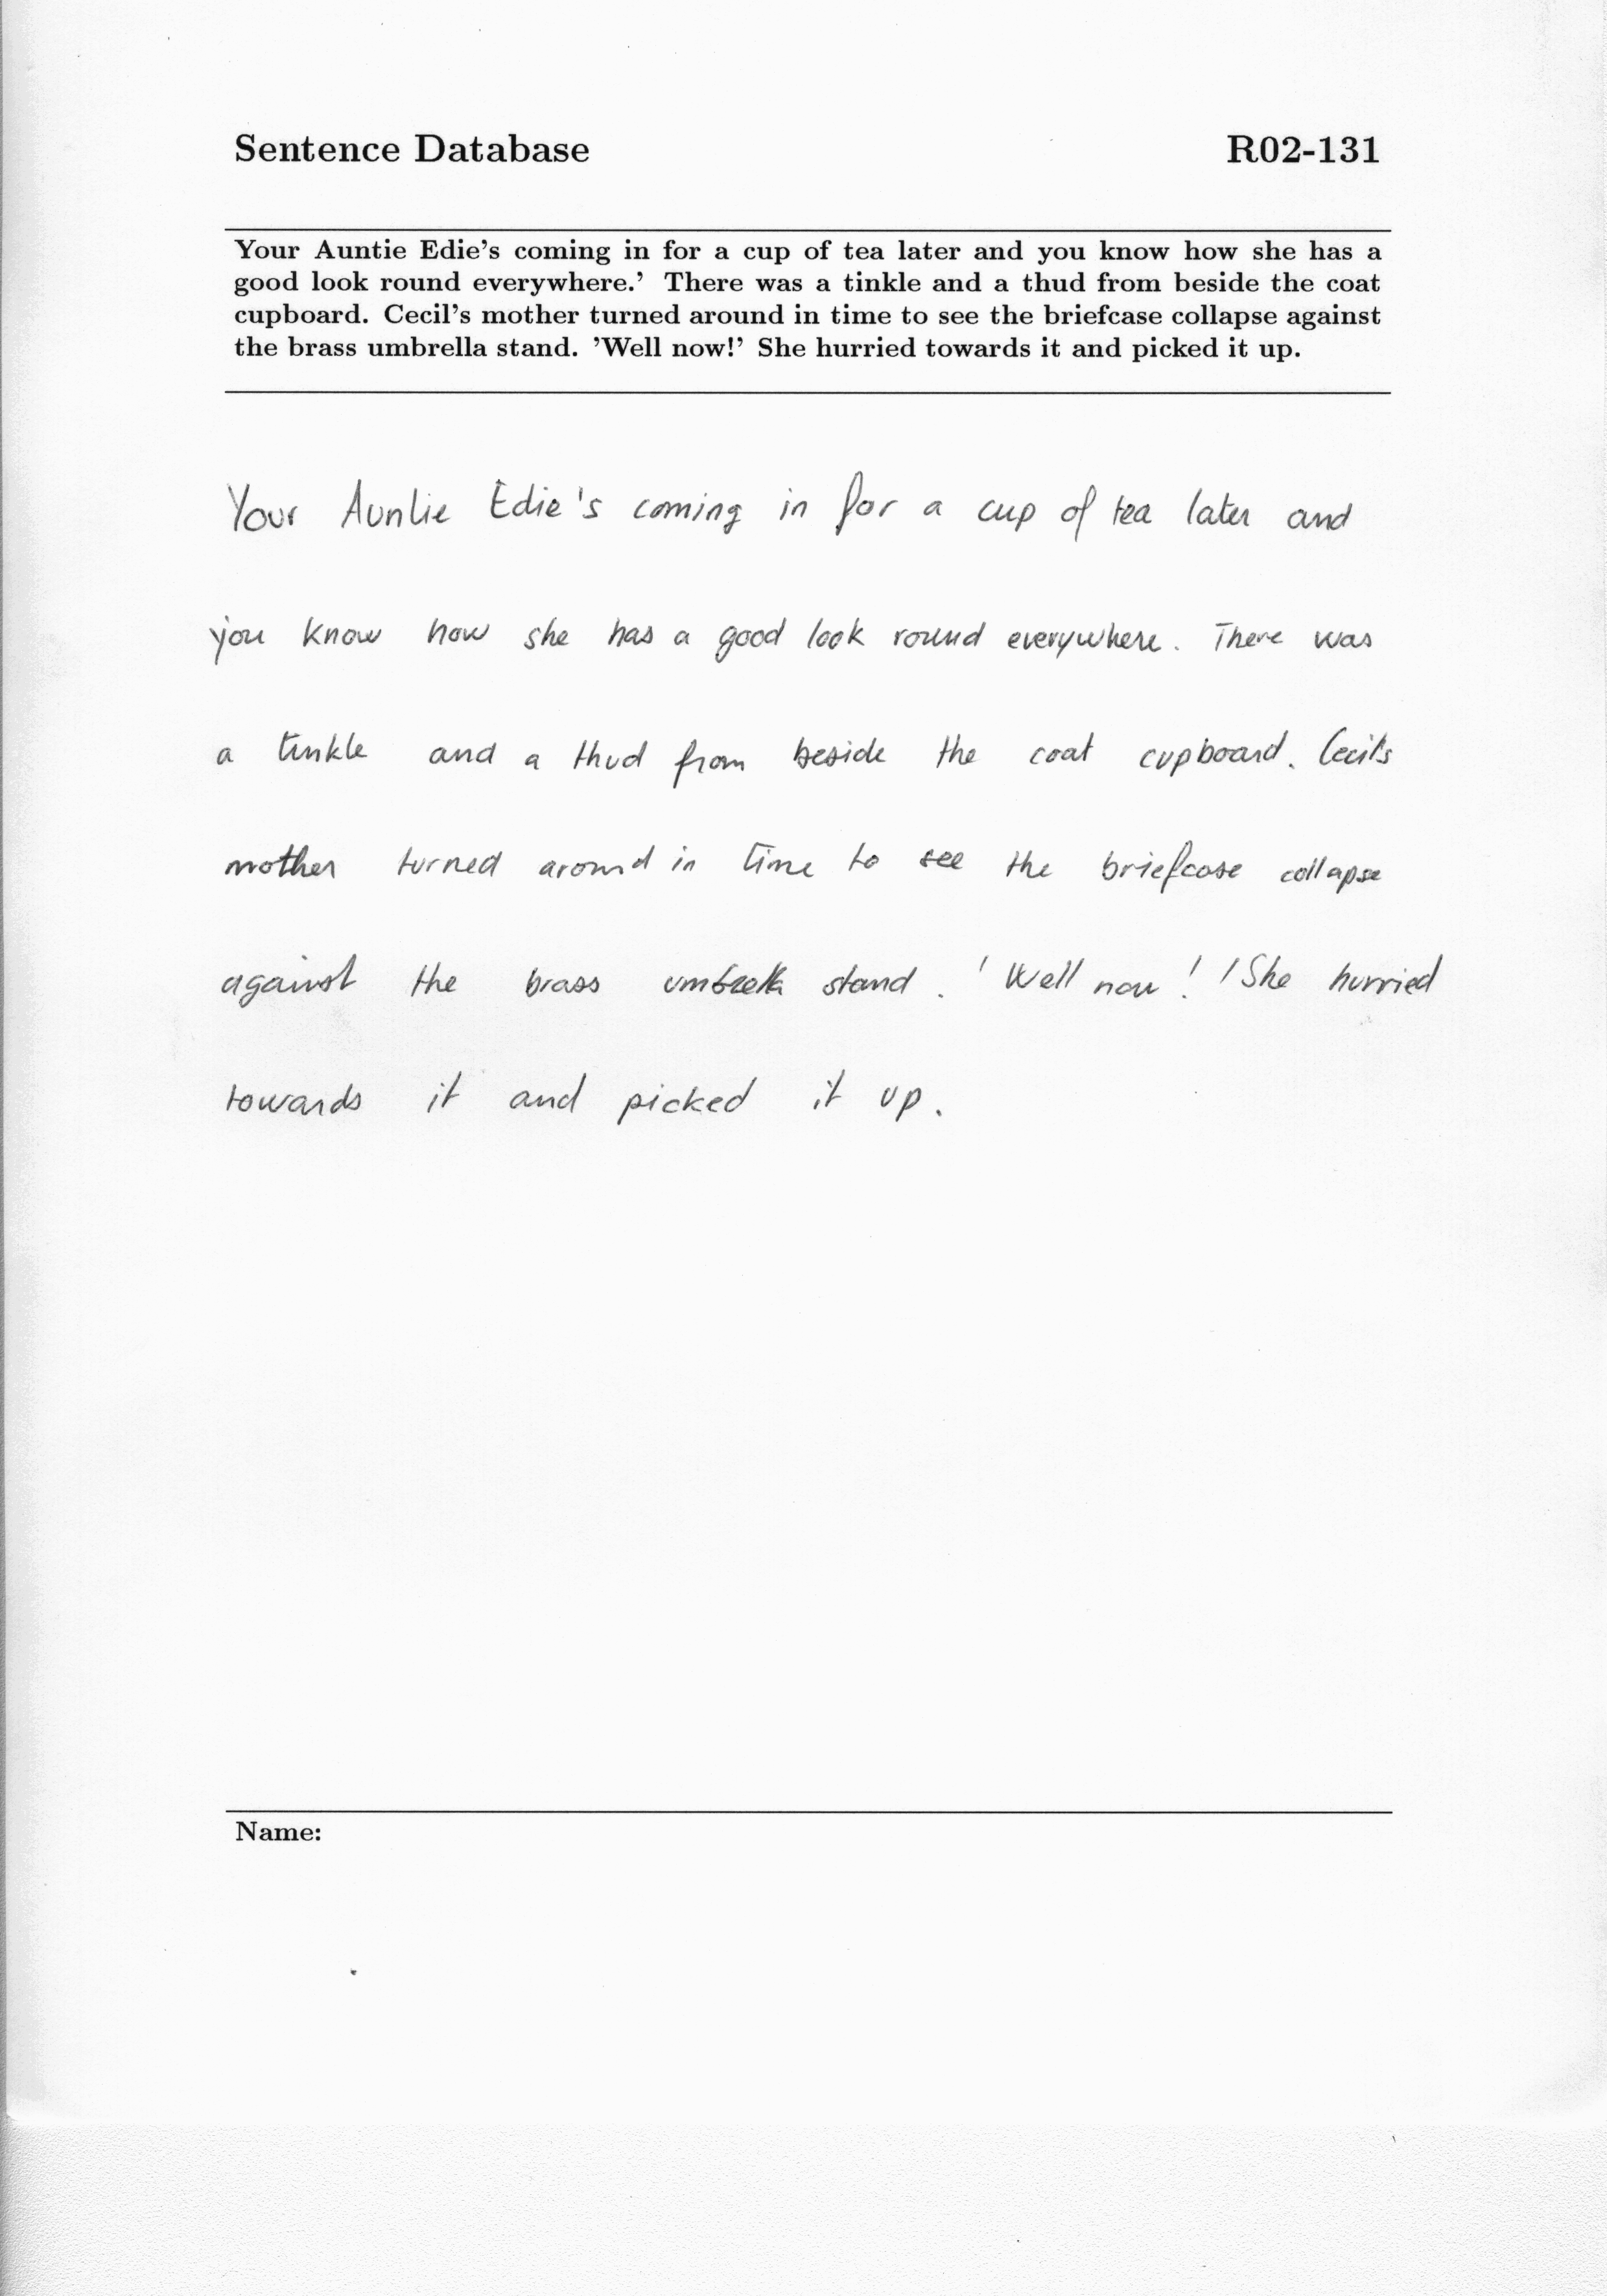 Sentence Database R02-131
Your Auntie Edie's coming in for a cup of tea later and you know how she has a
good look round everywhere.' There was a tinkle and a thud from beside the coat
cupboard. Cecil's mother turned around in time to see the briefcase collapse against
the brass umbrella stand. 'Well now!' She hurried towards it and picked it up.
Your Auntie Edie's coming in for a cup of tea later and
you know how she has a good look round everywhere. There was
a tinkle and a thud from beside the coat cupboard. Cecil's
mother turned around in time to see the briefcase collapse
against the brass umbrella stand. 'Well now!' She hurried
towards it and picked it up.
Name: